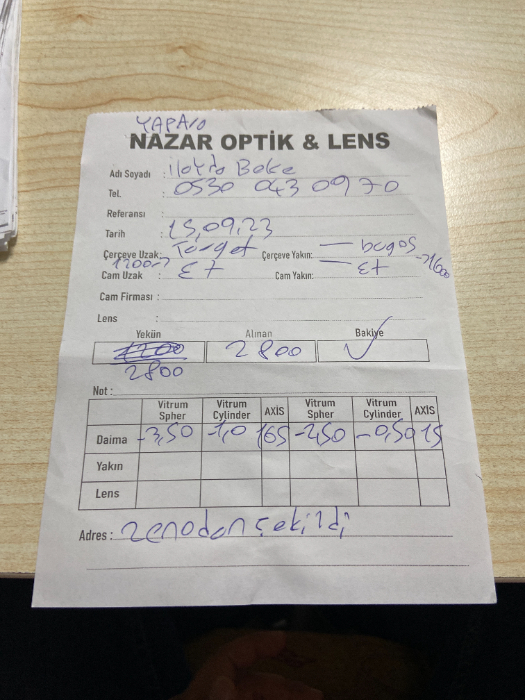 YAPAIO
NAZAR OPTİK & LENS
Adı Soyadı : ilayda Boke
Tel. : 0530 043 0970
Referansı :
Tarih : 15,09,23
Çerçeve Uzak: Target Çerçeve Yakın: — bogos
1200 Cam Uzak : Et Cam Yakın: — Et →1600
Cam Firması :
Lens :
Yekün Alınan Bakiye
1200 2800 ✓
2800
Not :
Vitrum Spher Vitrum Cylinder AXİS Vitrum Spher Vitrum Cylinder AXİS
Daima -3,50 -1,0 165 -2,50 -0,50 15
Yakın
Lens
Adres : zenodan çekildi